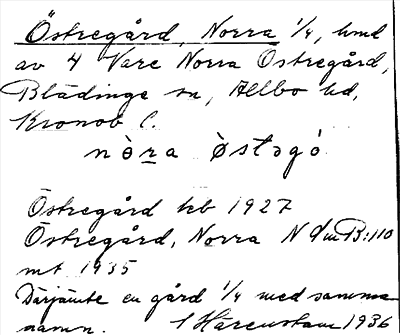 Östregård, Norra 1/4, hmd
av 4 Vare Norra Östregård,
Blädinge sn, Allbo hd,
Kronob l.
nò̱ra òstəgó
Östregård kb 1927
Östregård, Norra N dmB:110
mt 1935
Därjämte en gård 1/4 med samma
namn. 1936